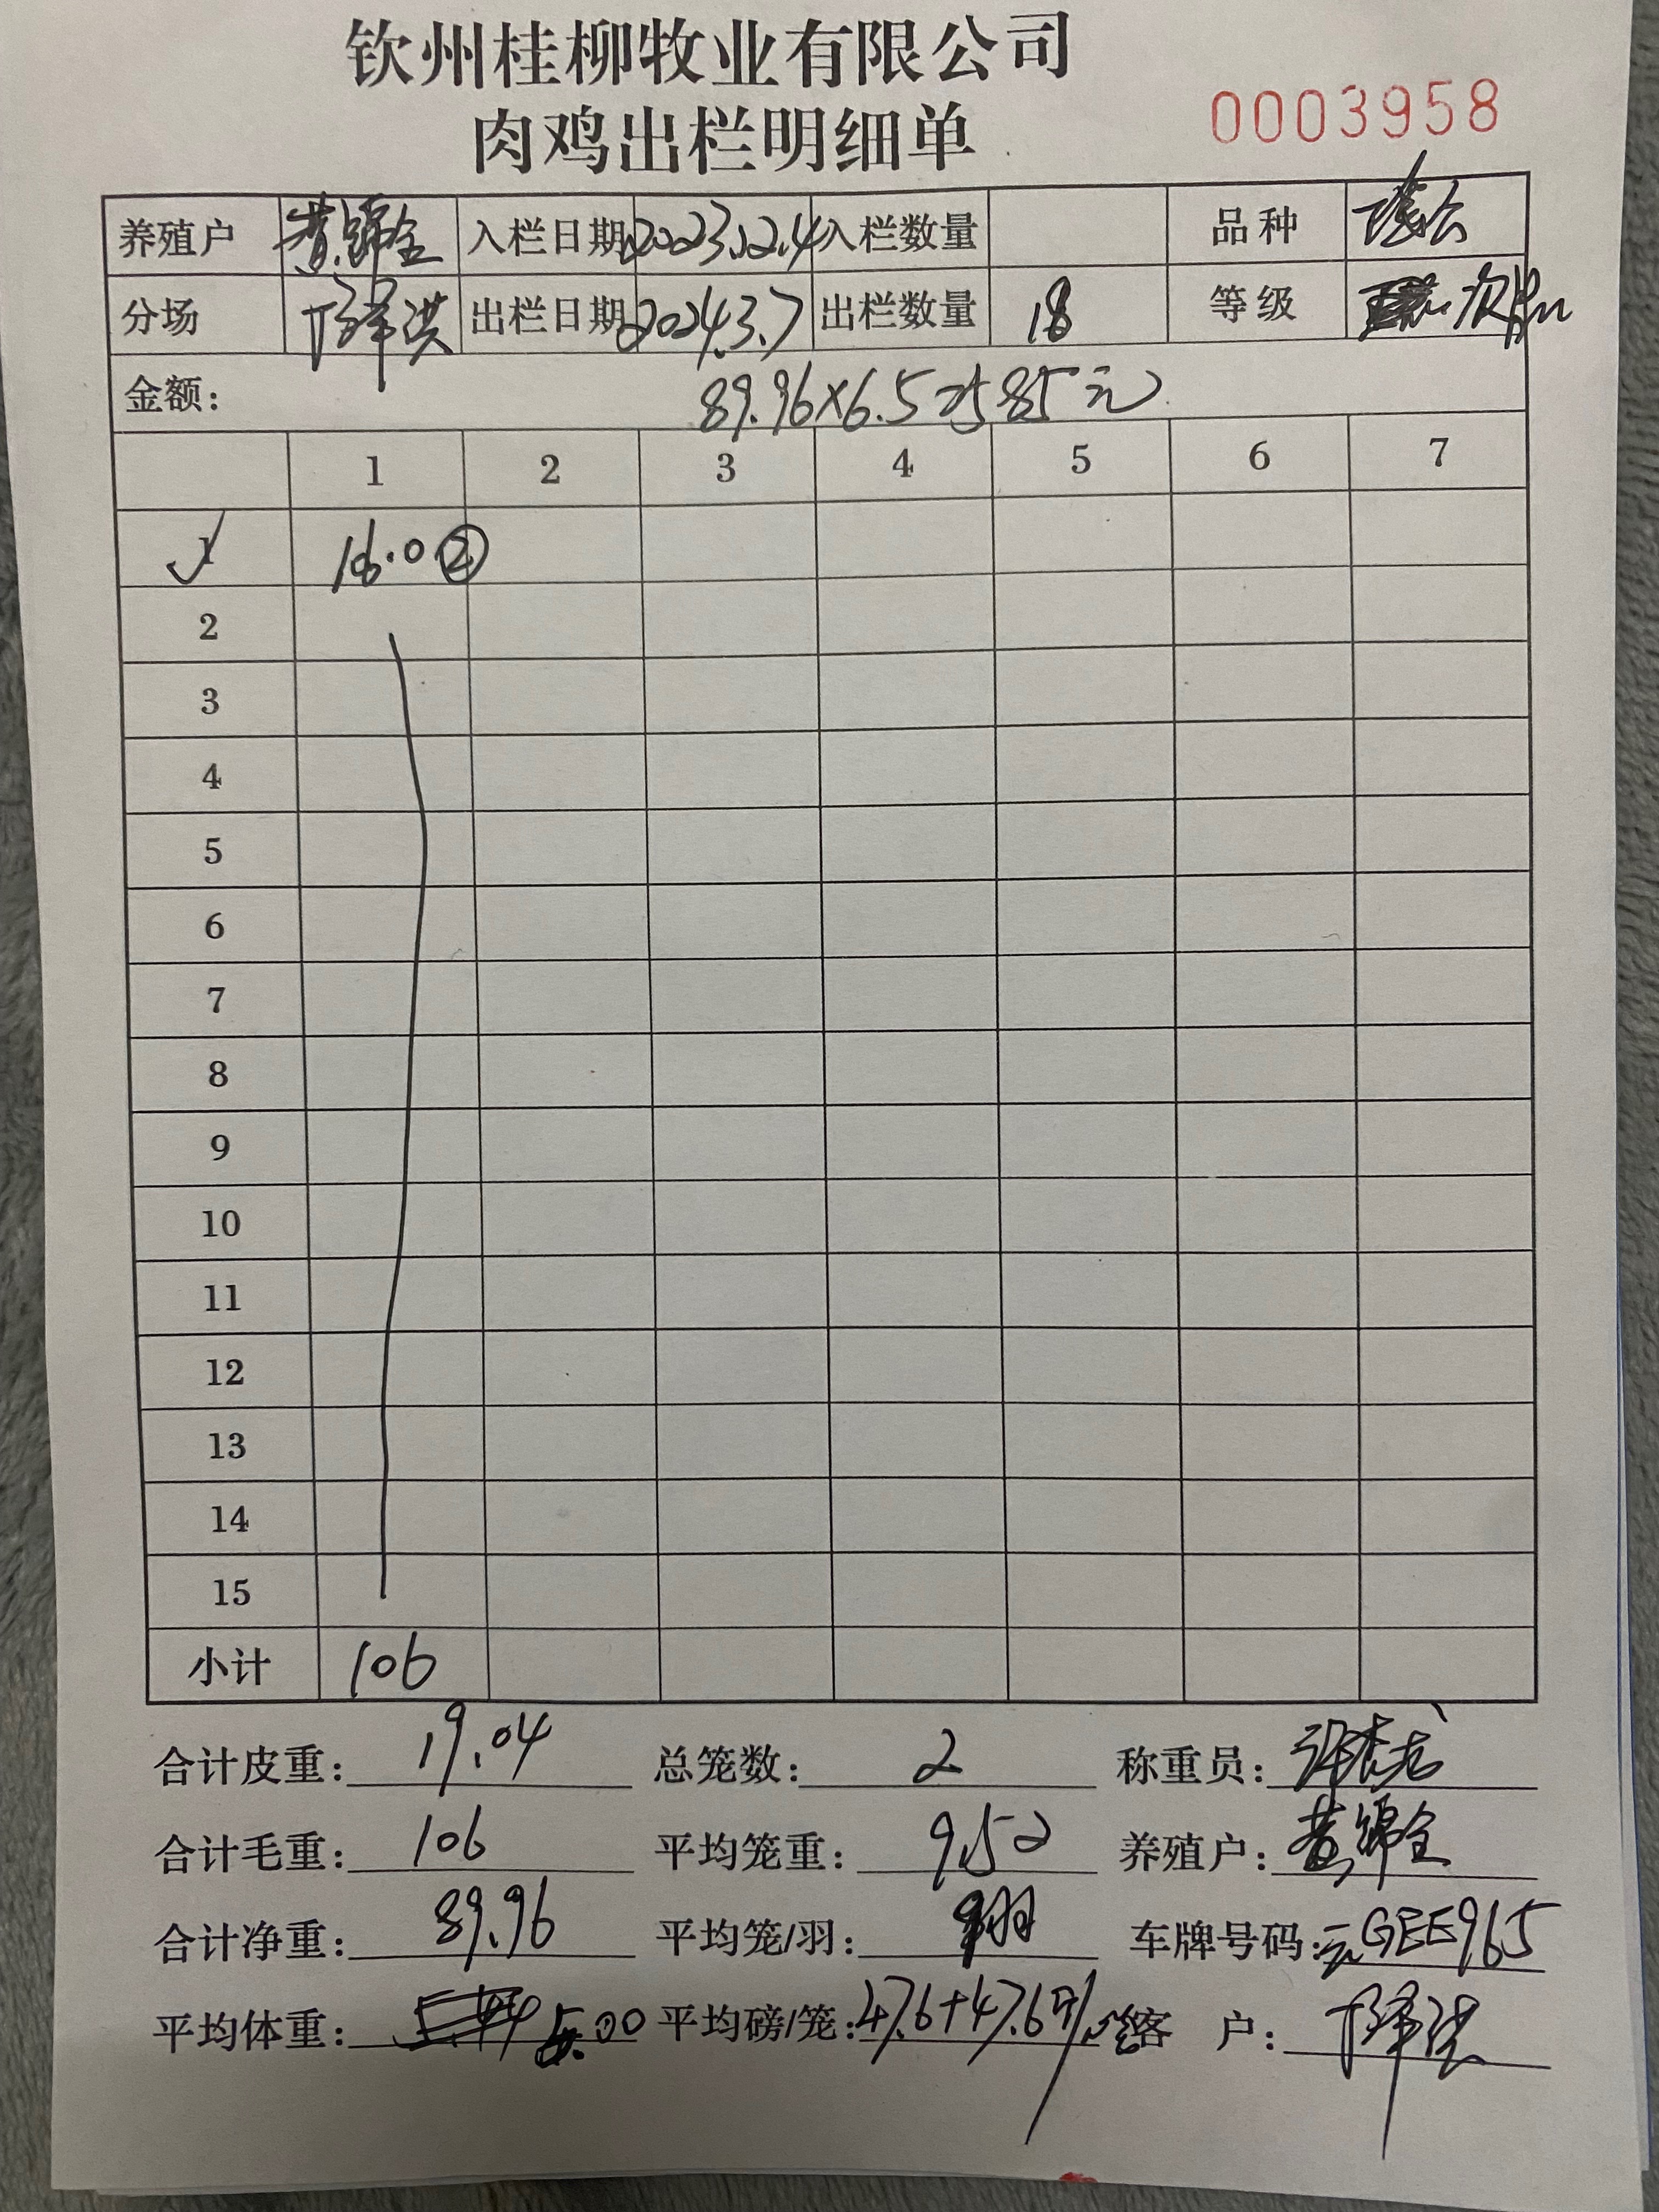 钦州桂柳牧业有限公司
肉鸡出栏明细单
0003958
养殖户 黄锦全 入栏日期 2023.12.4 入栏数量 品种
分场 出栏日期 2024.3.7 出栏数量 18 等级 次
金额: 89.96×6.5 585元
1 2 3 4 5 6 7
1 106.0 ②
2
3
4
5
6
7
8
9
10
11
12
13
14
15
小计 106
合计皮重: 19.04 总笼数: 2 称重员:
合计毛重: 106 平均笼重: 9.52 养殖户: 黄锦全
合计净重: 89.96 平均笼/羽: 车牌号码: 云GEE965
平均体重: 5.00 平均磅/笼: 47.6+47.6 客 户: